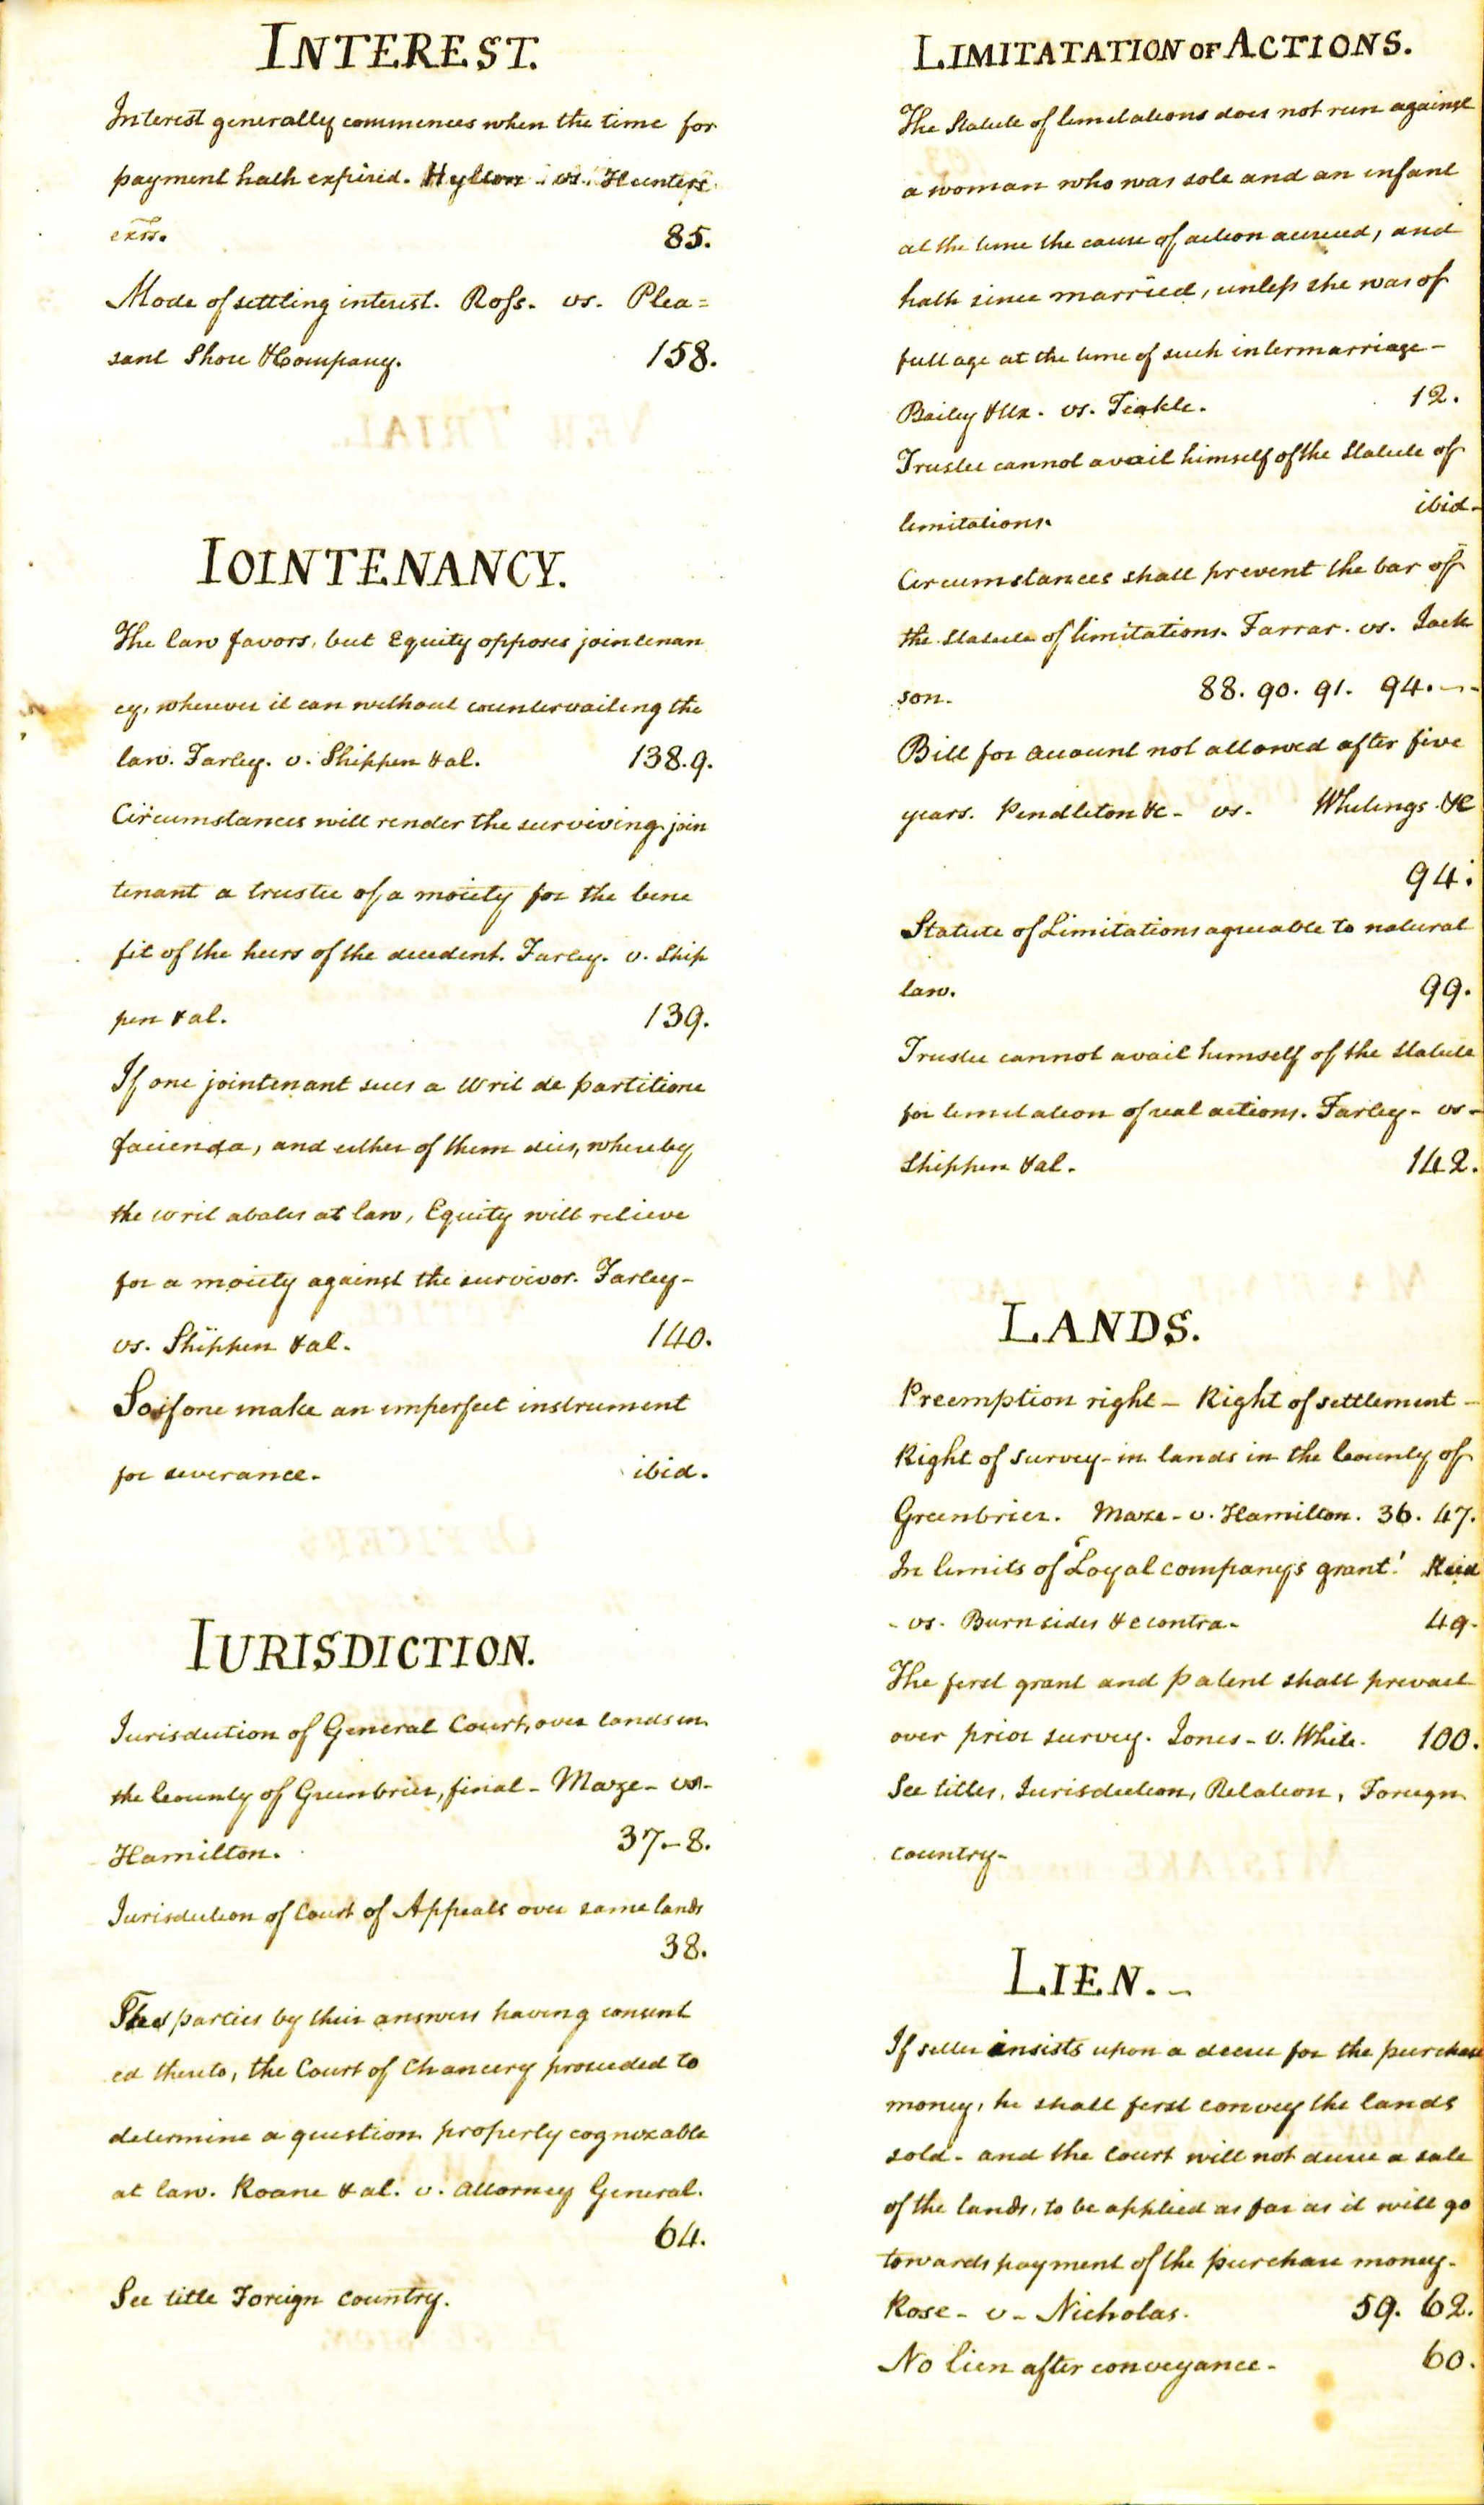 INTEREST.
Interest generally commences when the time for
payment hath expired. Hylton vs. Hunters
exrs. 85.
Mode of settling interest. Ross. vs. Plea=
sant Shore & Company. 158.
IOINTENANCY.
The law favors, but Equity opposes jointenan
cy, wherever it can without countervailing the
law. Farley. v. Shippen & al. 138.9.
Circumstances will render the surviving join
tenant a trustee of a moiety for the bene
fit of the heirs of the decedent. Farley. v. Ship
pen & al. 139.
If one jointenant sues a writ de partitione
facienda, and either of them dies, whereby
the writ abates at law, Equity will relieve
for a moiety against the survivor. Farley-
vs. Shippen & al. 140.
So if one make an imperfect instrument
for severance. ibid.
IURISDICTION.
Iurisdiction of General Court, over lands in
the County of Greenbrier, final- Maze- vs-
Hamilton. 37.-8.
Iurisdiction of Court of Appeals over same lands
38.
The parties by their answers having consent
ed thereto, the Court of Chancery proceeded to
determine a question properly cognizable
at law. Roane & al. v. Attorney General.
64.
See title Foreign Country.
LIMITATATION OF ACTIONS.
The Statute of limitations does not run against
a woman who was sole and an infant
at the time the cause of action accrued, and
hath since married, unless she was of
full age at the time of such intermarriage-
Bailey & Ux. vs. Teakle. 12.
Trustee cannot avail himself of the Statute of
limitations. ibid-
Circumstances shall prevent the bar of
the statute of limitations. Farrar. vs. Jack
son. 88. 90. 91. 94.--
Bill for account not allowed after five
years. Pendleton &c- vs. Whitings &c
94.
Statute of Limitations agreeable to natural
law. 99.
Trustee cannot avail himself of the statute
for limitation of real actions. Farley- vs-
Shippen & al. 142.
LANDS.
Preemption right- Right of settlement-
Right of survey- in lands in the County of
Greenbrier. Maze- v. Hamilton. 36. 47.
In limits of Loyal company's grant. Reid
- vs. Burnsides & e contra. 49.
The first grant and patent shall prevail
over prior survey. Jones- v. White. 100.
See titles, Iurisdiction, Relation, Foreign
country-
LIEN.-
If seller insists upon a decree for the purchase
money, he shall first convey the lands
sold- and the Court will not decree a sale
of the lands, to be applied as far as it will go
towards payment of the purchase money.
Rose- v- Nicholas. 59. 62.
No lien after conveyance- 60.